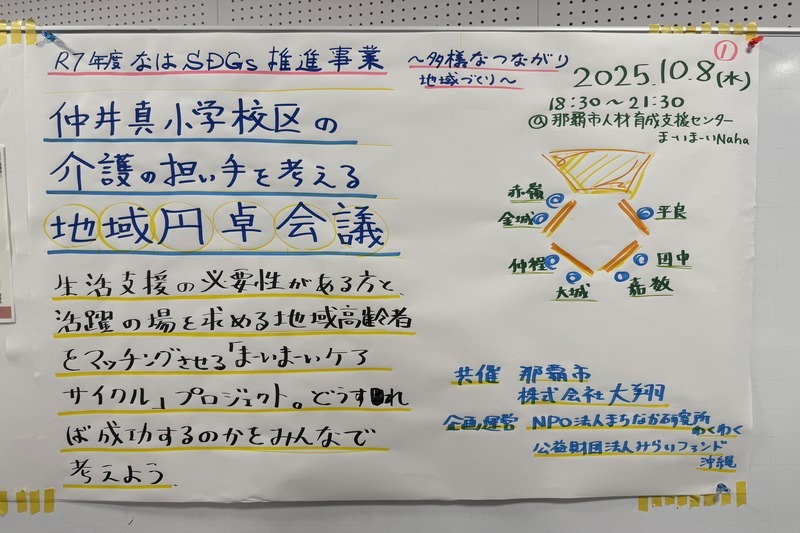 R7年度 なは SDGs 推進事業
～多様なつながり
地域づくり～
①
2025.10.8(水)
18:30～21:30
@ 那覇市人材育成支援センター
まーいまーいNaha
仲井真小学校区の
介護の担い手を考える
地域円卓会議
生活支援の必要性がある方と、
活躍の場を求める地域高齢者
をマッチングさせる「まーいまーいケア
サイクル」プロジェクト。どうすれ
ば成功するのかをみんなで
考えよう
赤嶺
金城
仲程
大城
嘉数
田中
平良
共催 那覇市
株式会社大翔
企画運営 NPO法人まちなか研究所
わくわく
公益財団法人みらいファンド
沖縄